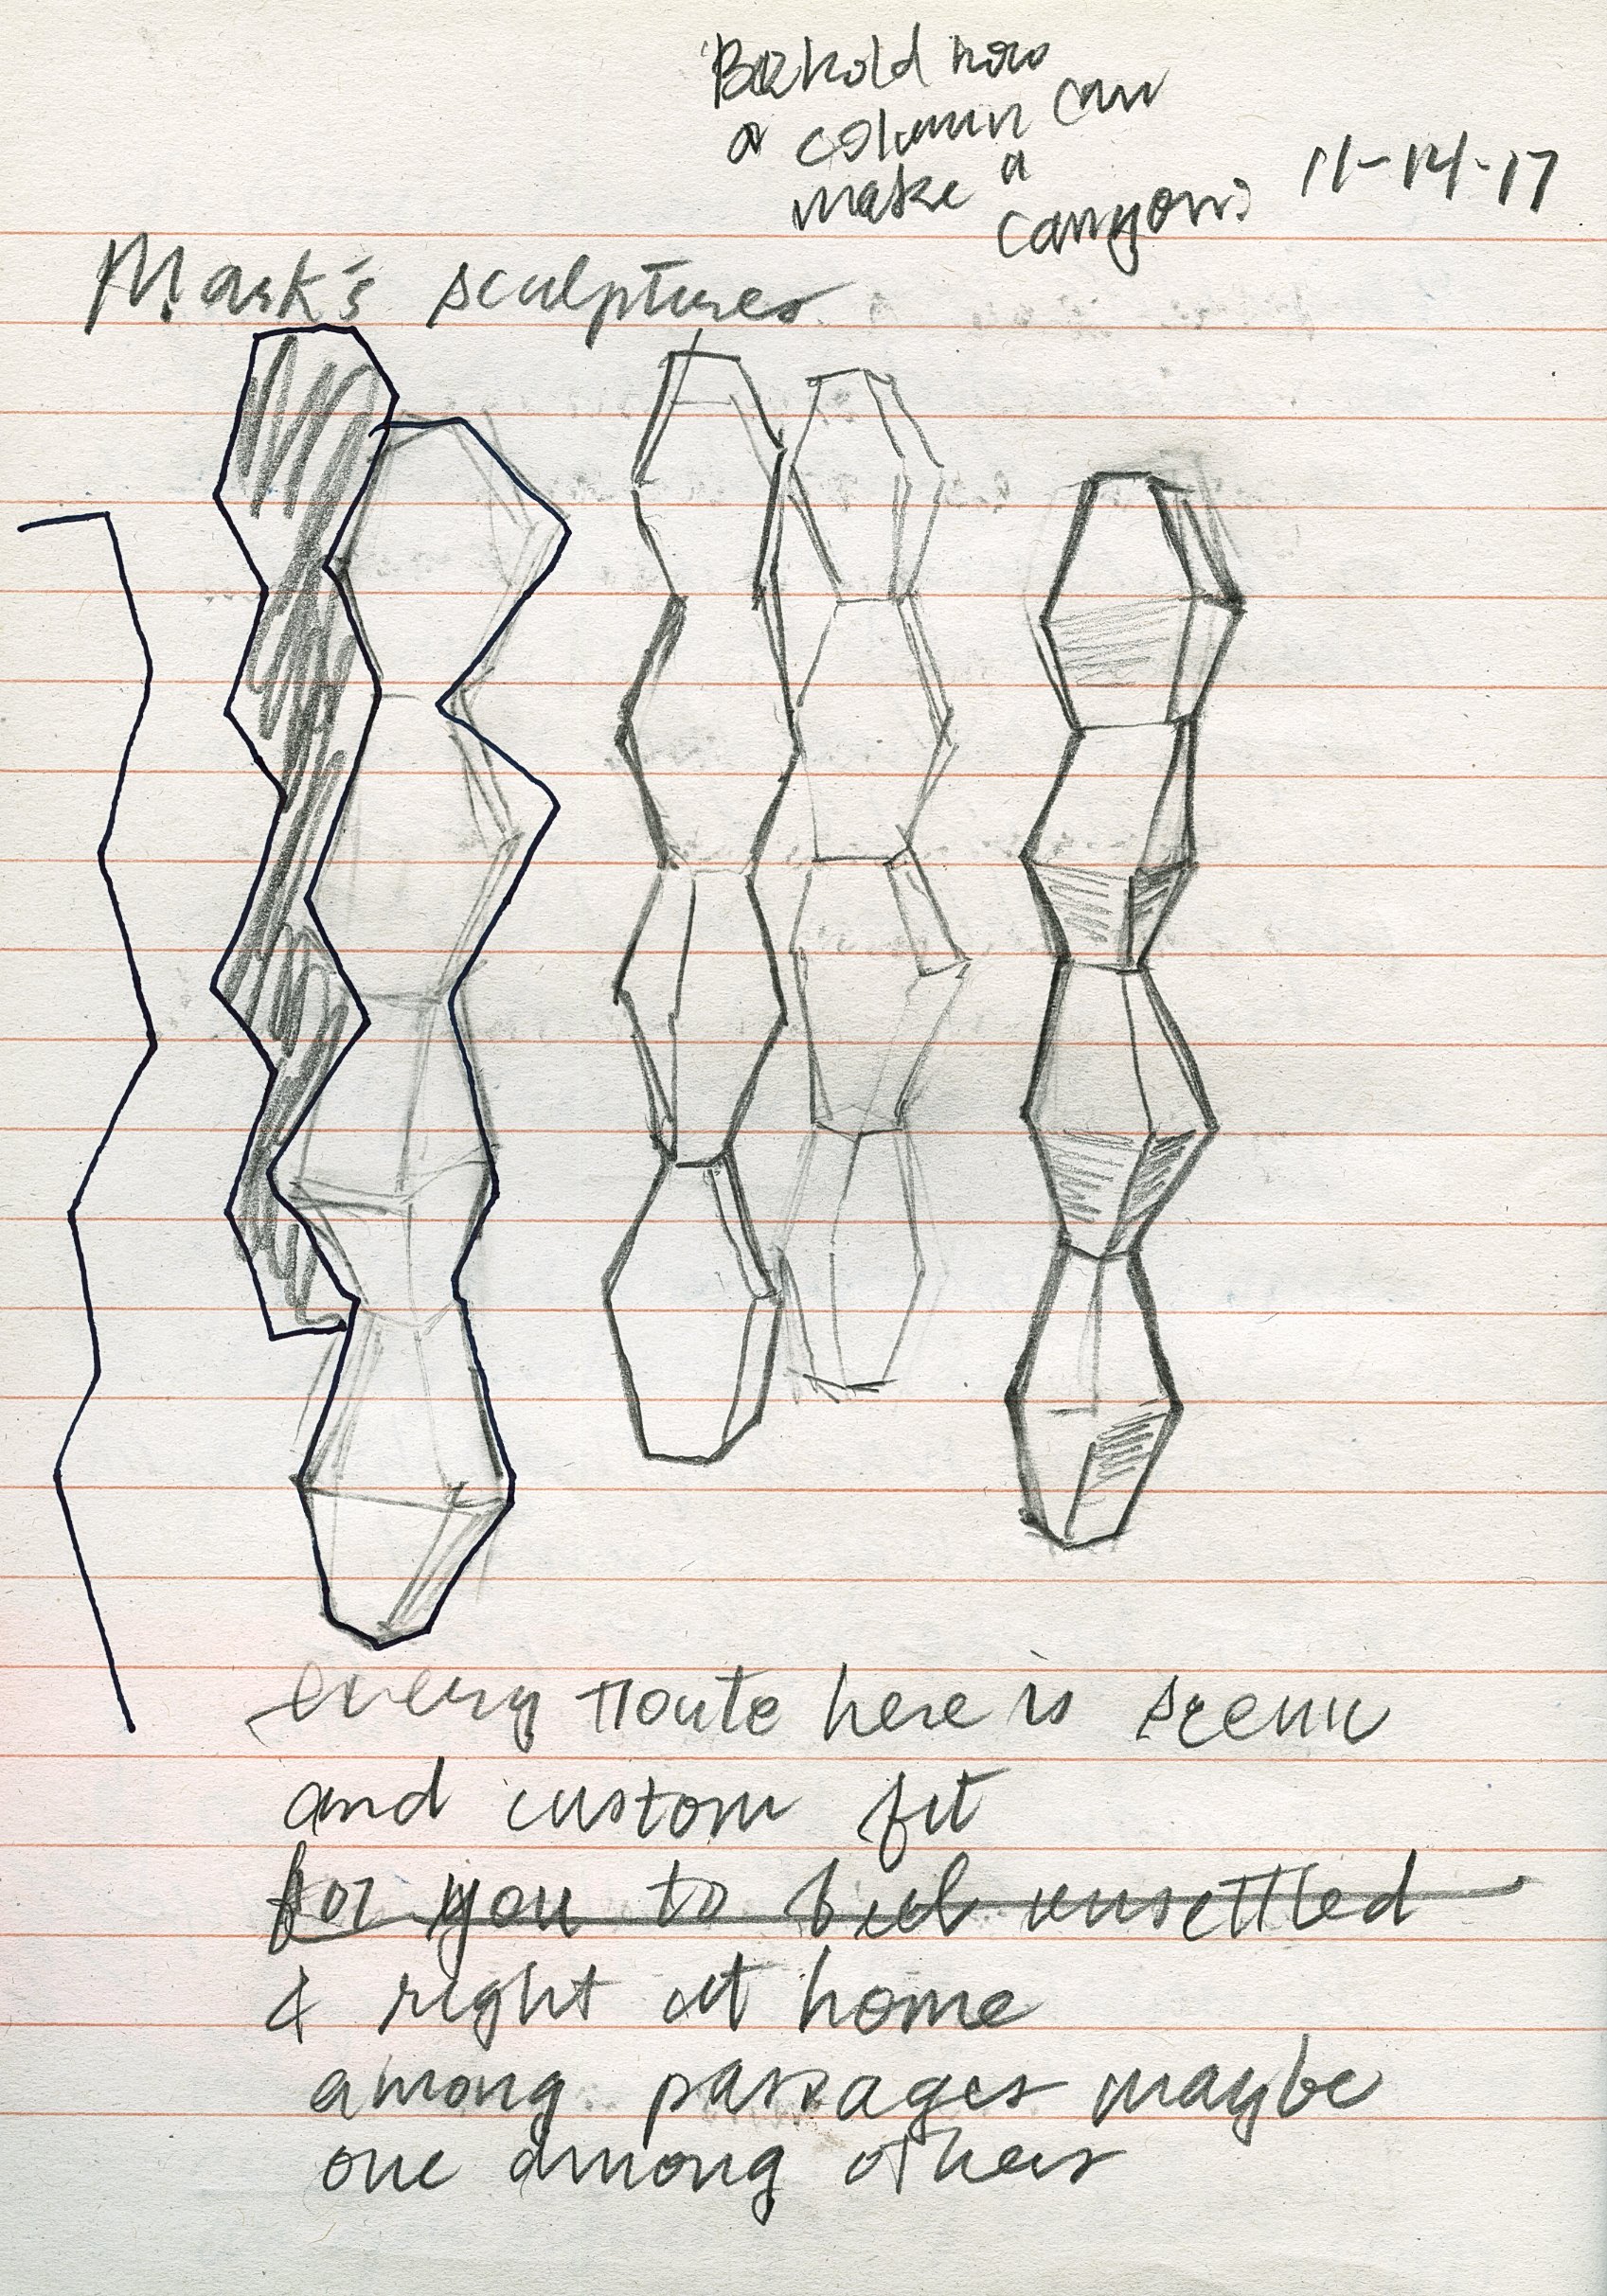 Behold how
a column can
make a
canyon:
11-14-17
Mark's sculptures
every route here is scenic
and custom fit
for you to feel unsettled
& right at home
among passages maybe
one among others